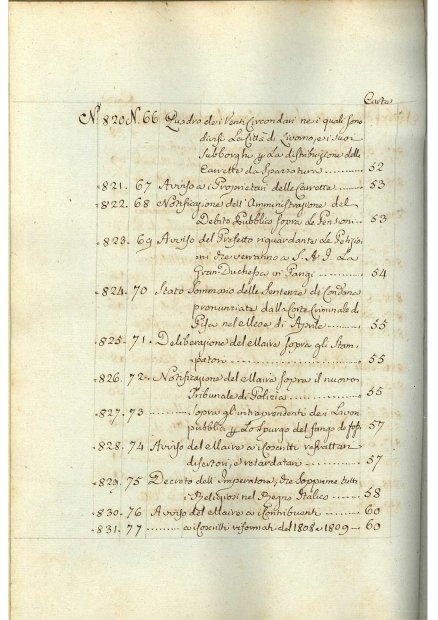 Carta
N. 820 N. 66 Quadro dei Venti Circondari nei quali sono
divise La Città di Livorno, e i suoi
Subborghi p. La distribuzione delle
Carrette da Sparzatura .......... 52
821. 67 Avviso a i Proprietari delle Carrette .......... 53
822. 68 Notificazione dell'Amministrazione del
Debito Pubblico sopra le Pensioni .. 53
823. 69 Avviso del Prefetto riguardante Le Petizio-
ni che verranno a S. A. I. La
Gran-Duchessa in Parigi .......... 54
824. 70 Stato Sommario delle Sentenze di Condanna
pronunziate dalla Corte Criminale di
Pisa nel Mese di Aprile .......... 55
825. 71. Deliberazione del Maire sopra gli Stam-
patori .......... 55
826. 72. Notificazione del Maire sopra il nuovo
Tribunale di Polizia .......... 55
827. 73 .......... sopra gl'intraprendenti dei Lavori
pubblici p. Lo Spurgo del fango de fossi 57
828. 74 Avviso del Maire a i Coscritti refrattari
disertori, e retardatari .......... 57
829. 75 Decreto dell'Imperatore, che Sopprime tutti
i Religiosi nel Regno Italico ...... 58
830. 76 Avviso del Maire a i Contribuenti .......... 60
831. 77 .......... a i Coscritti riformati del 1808 e 1809 .. 60